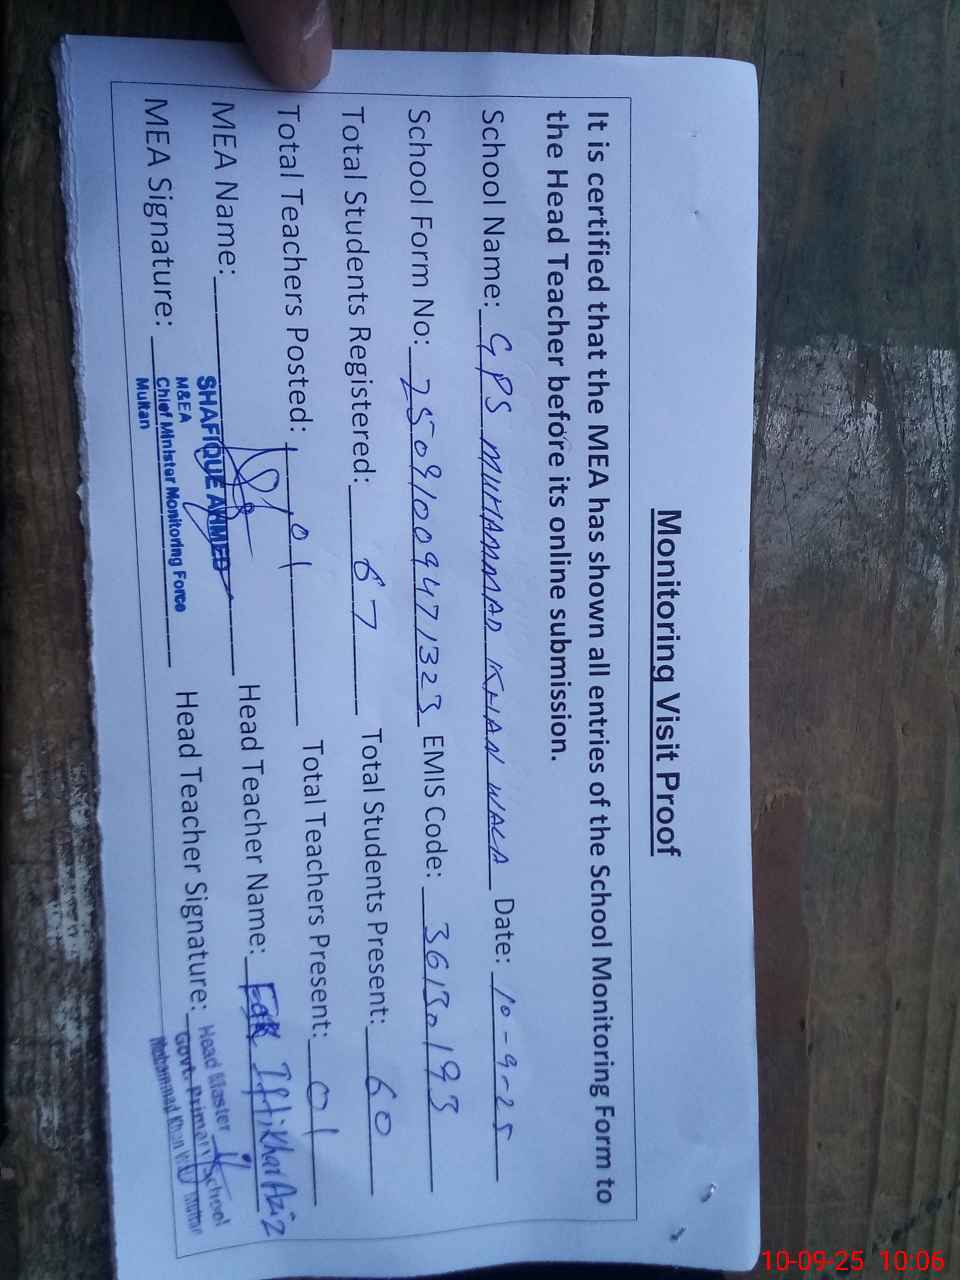 Monitoring Visit Proof
It is certified that the MEA has shown all entries of the School Monitoring Form to
the Head Teacher before its online submission.
School Name: GPS MUHAMMAD KHAN WALA Date: 10-9-25
School Form No: 25091009471323 EMIS Code: 36130193
Total Students Registered: 67 Total Students Present: 60
Total Teachers Posted: 01 Total Teachers Present: 01
MEA Name: SHAFIQUE AHMED Head Teacher Name: Iftikhar Aziz
MEA Signature: Head Teacher Signature:
M&EA
Chief Minister Monitoring Force
Multan
Head Master
Govt. Primary School
Muhammad Khan Wala Multan
10-09-25 10:06